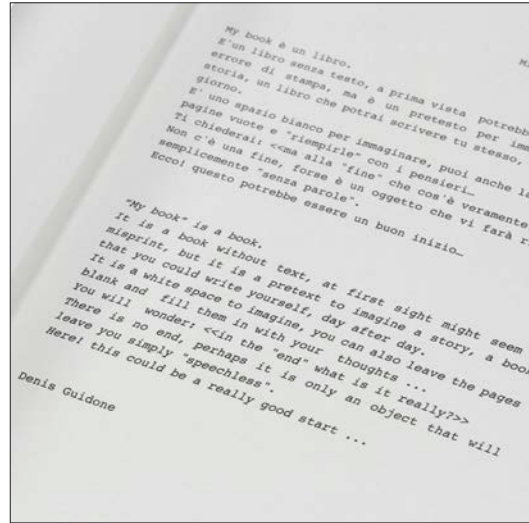 My book è un libro.
E'un libro senza testo, a prima vista potrebb
errore di stampa, ma è un pretesto per imm
storia, un libro che potrai scrivere tu stesso,
giorno.
E' uno spazio bianco per immaginare, puoi anche la
pagine vuote e "riempirle" con i pensieri…
Ti chiederai: <<ma alla "fine" che cos'è veramente
Non c'è una fine, forse è un oggetto che vi farà r
semplicemente "senza parole".
Ecco! questo potrebbe essere un buon inizio…
"My book" is a book.
It is a book without text, at first sight might seem
misprint, but it is a pretext to imagine a story, a book
that you could write yourself, day after day.
It is a white space to imagine, you can also leave the pages
blank and fill them in with your thoughts ...
You will wonder: <<in the "end" what is it really?>>
There is no end, perhaps it is only an object that will
leave you simply "speechless".
Here! this could be a really good start ...
Denis Guidone